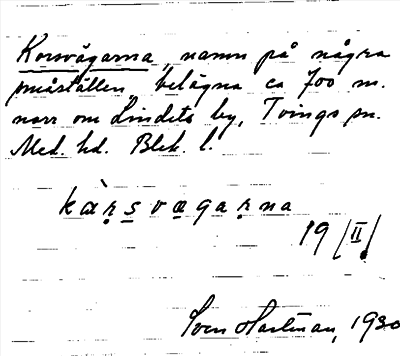 Korsvägarna, namn på några
småställen, belägna ca 700 m.
norr om Lindets by, Tvings sn.
Med. hd. Blek. l.
kàṛs̱vægaṛna
19/II
Sven Hartman, 1930